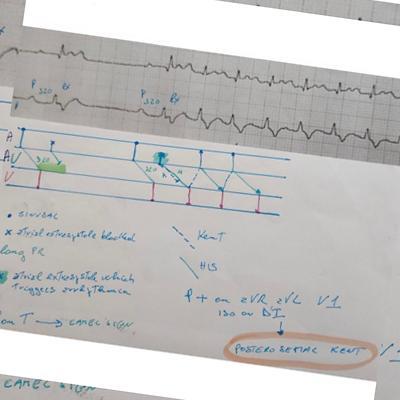 P 320 Rx
P 320 Rx
A
AV
V
320
320
• SINUSAL
x atrial extrasystole blocked
long PR
atrial extrasystole which
triggers arrhythmia
on T → CAMEL SIGN
Kent
HIS
P + on aVR aVL V1
ISO on DI
POSTEROSEPTAL KENT
CAMEL SIGN